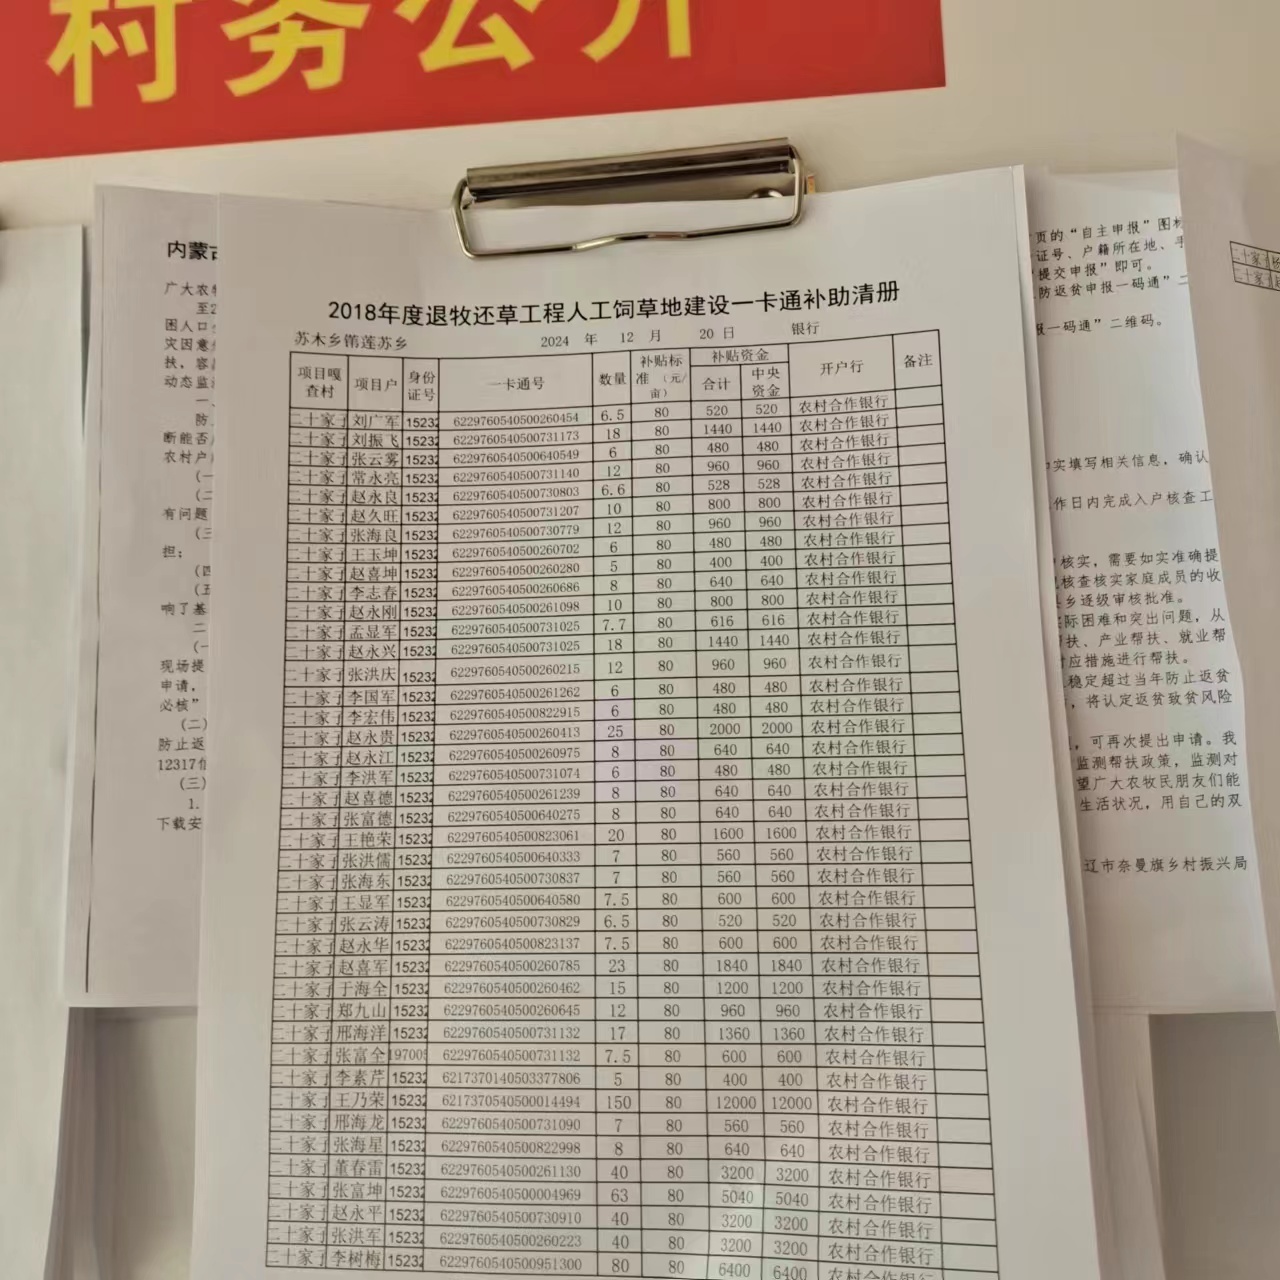 村务公开
2018年度退牧还草工程人工饲草地建设一卡通补助清册
苏木乡 2024 年 12 月 20 日 银行
项目嘎查村 项目户 身份证号 一卡通号 数量 补贴标准(元/亩) 补贴资金 合计 中央资金 开户行 备注
二十家子 刘广军 15232 6229760540500260454 6.5 80 520 520 农村合作银行
二十家子 刘振飞 15232 6229760540500731173 18 80 1440 1440 农村合作银行
二十家子 张云雾 15232 6229760540500640549 6 80 480 480 农村合作银行
二十家子 常永亮 15232 6229760540500731140 12 80 960 960 农村合作银行
二十家子 赵永良 15232 6229760540500730803 6.6 80 528 528 农村合作银行
二十家子 赵久旺 15232 6229760540500731207 10 80 800 800 农村合作银行
二十家子 张海良 15232 6229760540500730779 12 80 960 960 农村合作银行
二十家子 王玉坤 15232 6229760540500260702 6 80 480 480 农村合作银行
二十家子 赵喜坤 15232 6229760540500260280 5 80 400 400 农村合作银行
二十家子 李志春 15232 6229760540500260686 8 80 640 640 农村合作银行
二十家子 赵永刚 15232 6229760540500261098 10 80 800 800 农村合作银行
二十家子 孟显军 15232 6229760540500731025 7.7 80 616 616 农村合作银行
二十家子 赵永兴 15232 6229760540500731025 18 80 1440 1440 农村合作银行
二十家子 张洪庆 15232 6229760540500260215 12 80 960 960 农村合作银行
二十家子 李国军 15232 6229760540500261262 6 80 480 480 农村合作银行
二十家子 李宏伟 15232 6229760540500822915 6 80 480 480 农村合作银行
二十家子 赵永贵 15232 6229760540500260413 25 80 2000 2000 农村合作银行
二十家子 赵永江 15232 6229760540500260975 8 80 640 640 农村合作银行
二十家子 李洪军 15232 6229760540500731074 6 80 480 480 农村合作银行
二十家子 赵喜德 15232 6229760540500261239 8 80 640 640 农村合作银行
二十家子 张富德 15232 6229760540500640275 8 80 640 640 农村合作银行
二十家子 王艳荣 15232 6229760540500823061 20 80 1600 1600 农村合作银行
二十家子 张洪儒 15232 6229760540500640333 7 80 560 560 农村合作银行
二十家子 张海东 15232 6229760540500730837 7 80 560 560 农村合作银行
二十家子 王显军 15232 6229760540500640580 7.5 80 600 600 农村合作银行
二十家子 张云涛 15232 6229760540500730829 6.5 80 520 520 农村合作银行
二十家子 赵永华 15232 6229760540500823137 7.5 80 600 600 农村合作银行
二十家子 赵喜军 15232 6229760540500260785 23 80 1840 1840 农村合作银行
二十家子 于海全 15232 6229760540500260462 15 80 1200 1200 农村合作银行
二十家子 郑九山 15232 6229760540500260645 12 80 960 960 农村合作银行
二十家子 邢海洋 15232 6229760540500731132 17 80 1360 1360 农村合作银行
二十家子 张富全 197005 6229760540500731132 7.5 80 600 600 农村合作银行
二十家子 李素芹 15232 6217370140503377806 5 80 400 400 农村合作银行
二十家子 王乃荣 15232 6217370540500014494 150 80 12000 12000 农村合作银行
二十家子 邢海龙 15232 6229760540500731090 7 80 560 560 农村合作银行
二十家子 张海星 15232 6229760540500822998 8 80 640 640 农村合作银行
二十家子 董春雷 15232 6229760540500261130 40 80 3200 3200 农村合作银行
二十家子 张富坤 15232 6229760540500004969 63 80 5040 5040 农村合作银行
二十家子 赵永平 15232 6229760540500730910 40 80 3200 3200 农村合作银行
二十家子 张洪军 15232 6229760540500260223 40 80 3200 3200 农村合作银行
二十家子 李树梅 15232 6229760540500951300 80 80 6400 6400 农村合作银行
内蒙古
广大农牧
至2
困人口
灾因意
扶,容
动态监
一、
防
断能否
农村户
(一
(二
有问题
(三
担:
(四
(五
响了基
二
(一
现场提
申请,
必核”
(二)
防止返
12317
(三)
1.
下载安
页的“自主申报”图标
证号、户籍所在地、手
提交申报”即可。
防返贫申报一码通”二
报一码通”二维码。
实填写相关信息,确认
作日内完成入户核查工
核实,需要如实准确提
核查核实家庭成员的收
乡逐级审核批准。
际困难和突出问题,从
帮扶、产业帮扶、就业帮
应措施进行帮扶。
稳定超过当年防止返贫
,将认定返贫致贫风险
,可再次提出申请。我
监测帮扶政策,监测对
望广大农牧民朋友们能
生活状况,用自己的双
辽市奈曼旗乡村振兴局
二十家子
二十家子